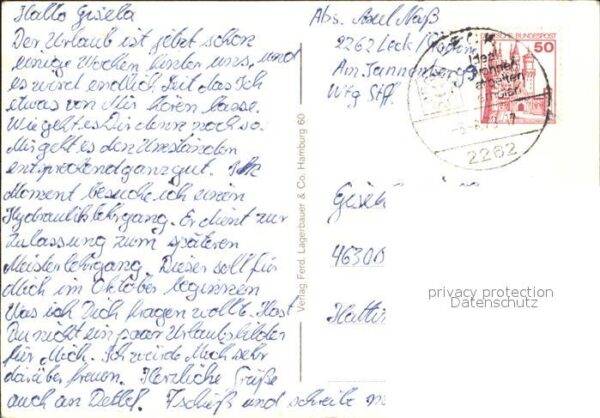 Hallo Gisela
Der Urlaub ist jetzt schon
einige Wochen hinter uns, und
es wird endlich Zeit das Ich
etwas von Mir hören lasse.
Wie geht es Dir denn noch so.
Mir geht es den Umständen
entsprechend ganz gut. Im
Moment besuche ich einen
Hydrauliklehrgang. Er dient zur
Zulassung zum späteren
Meisterlehrgang. Dieser soll für
Mich im Oktober beginnen
Was ich Dich fragen wollte. Hast
Du nicht ein paar Urlaubsbilder
für Mich. Ich würde Mich sehr
darüber freuen. Herzliche Grüße
auch an Detlef. Tschüß und schreibe
Verlag Ferd. Lagerbauer & Co. Hamburg 60
Abs. Axel Naß
2262 Leck
Am Tannenberg
Wtg Stff.
DEUTSCHE BUNDESPOST
50
2262
Gisel
4630 B
Hattin
privacy protection
Datenschutz